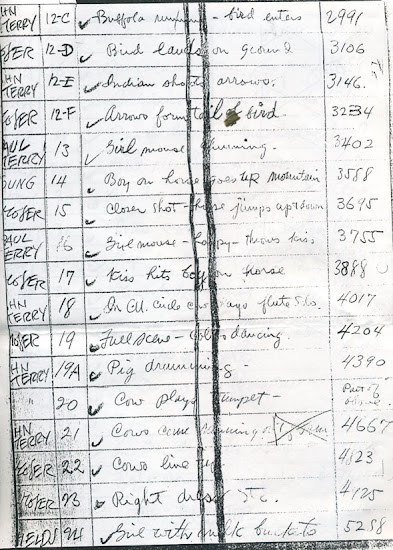 HN TERRY 12-C ✓ Buffola running - bird enters 2991
OSER 12-D ✓ Bird lands on ground 3106
HN TERRY 12-E ✓ Indian shoots arrows. 3146.
OSER 12-F ✓ Arrows form tail of bird. 3234
AUL TERRY 13 ✓ Girl mouse humming. 3402
OUNG 14 ✓ Boy on horse goes up mountain 3588
MOSER 15 ✓ Closer shot - horse jumps up & down 3695
PAUL TERRY 16 ✓ Girl mouse - happy - throws kiss 3755
MOSER 17 ✓ Kiss hits boy on horse 3888
HN TERRY 18 ✓ In CU. circle cow plays flute solo. 4017
MOSER 19 ✓ Full scene - dancing. 4204
HN TERRY 19A ✓ Pig drumming - 4390
" 20 ✓ Cow plays trumpet - Part of above.
HN TERRY 21 ✓ Cows come running 4667
MOSER 22 ✓ Cows line up. 4823
MOSER 23 ✓ Right dress etc. 4125
IELDS 24 ✓ Girl with milk buckets 5258